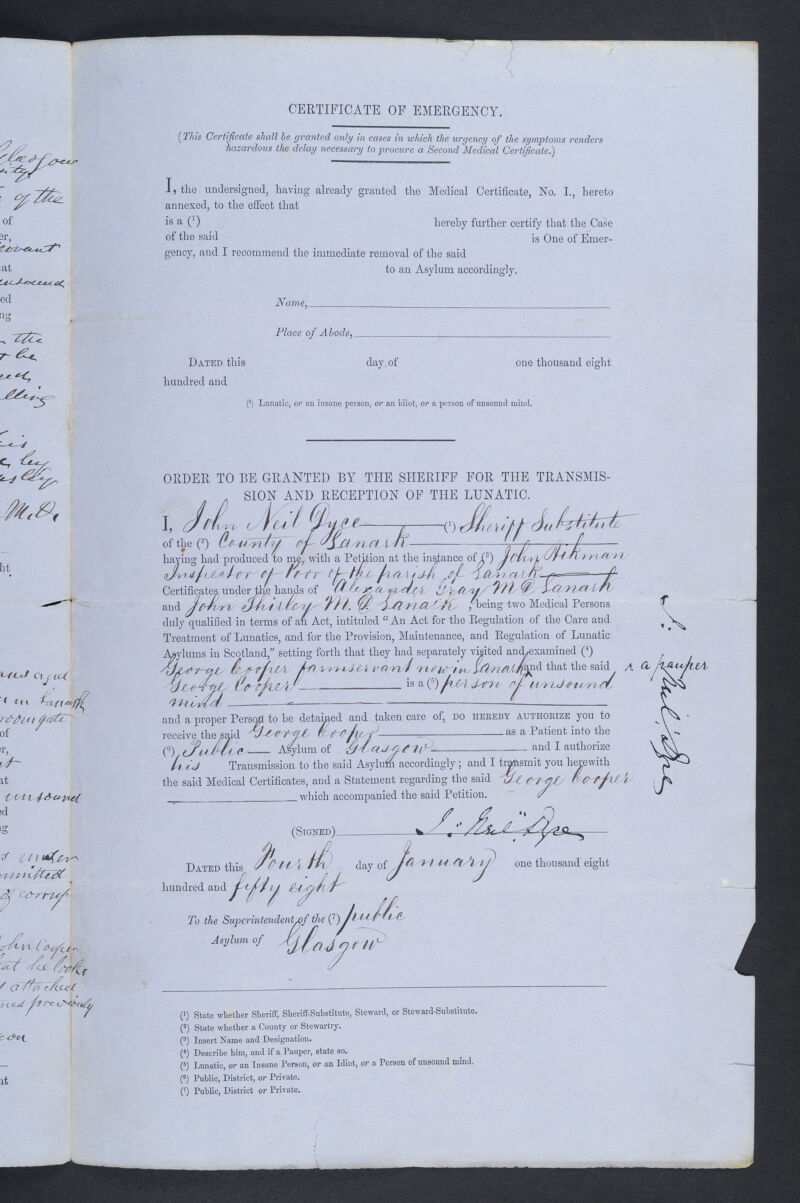 CERTIFICATE OF EMERGENCY.
(This Certificate shall be granted only in cases in which the urgency of the symptoms renders
hazardous the delay necessary to procure a Second Medical Certificate.)
I, the undersigned, having already granted the Medical Certificate, No. I., hereto
annexed, to the effect that
is a (¹) hereby further certify that the Case
of the said is One of Emer-
gency, and I recommend the immediate removal of the said
to an Asylum accordingly.
Name,
Place of Abode,
DATED this day of one thousand eight
hundred and
(¹) Lunatic, or an insane person, or an idiot, or a person of unsound mind.
ORDER TO BE GRANTED BY THE SHERIFF FOR THE TRANSMIS-
SION AND RECEPTION OF THE LUNATIC.
I, John Neil Dyce (¹) Sheriff Substitute
of the (²) County of Lanark
having had produced to me, with a Petition at the instance of (³) John Aikman
Inspector of Poor of the parish of Lanark
Certificates under the hands of Alexander Gray M.D. Lanark
and John Shirley M.D. Lanark, being two Medical Persons
duly qualified in terms of an Act, intituled "An Act for the Regulation of the Care and
Treatment of Lunatics, and for the Provision, Maintenance, and Regulation of Lunatic
Asylums in Scotland," setting forth that they had separately visited and examined (⁴)
George Cooper farmservant now in Lanark and that the said
George Cooper is a (⁵) person of unsound
mind
and a proper Person to be detained and taken care of, DO HEREBY AUTHORIZE you to
receive the said George Cooper as a Patient into the
(⁶) Public Asylum of Glasgow and I authorize
his Transmission to the said Asylum accordingly; and I transmit you herewith
the said Medical Certificates, and a Statement regarding the said George Cooper
which accompanied the said Petition.
(SIGNED) J: Neil Dyce
DATED this Fourth day of January one thousand eight
hundred and fifty eight
To the Superintendent of the (⁷) public
Asylum of Glasgow
(¹) State whether Sheriff, Sheriff-Substitute, Steward, or Steward-Substitute.
(²) State whether a County or Stewartry.
(³) Insert Name and Designation.
(⁴) Describe him, and if a Pauper, state so.
(⁵) Lunatic, or an Insane Person, or an Idiot, or a Person of unsound mind.
(⁶) Public, District, or Private.
(⁷) Public, District or Private.
a pauper
J: Neil Dyce
Glasgow
of the
of
er,
servant
at
unsound
ed
ng
the
by
M.D.
ht
in Lanark
of
er,
at
unsound
ed
ng
under
John Cooper
that he looks
attached
previously